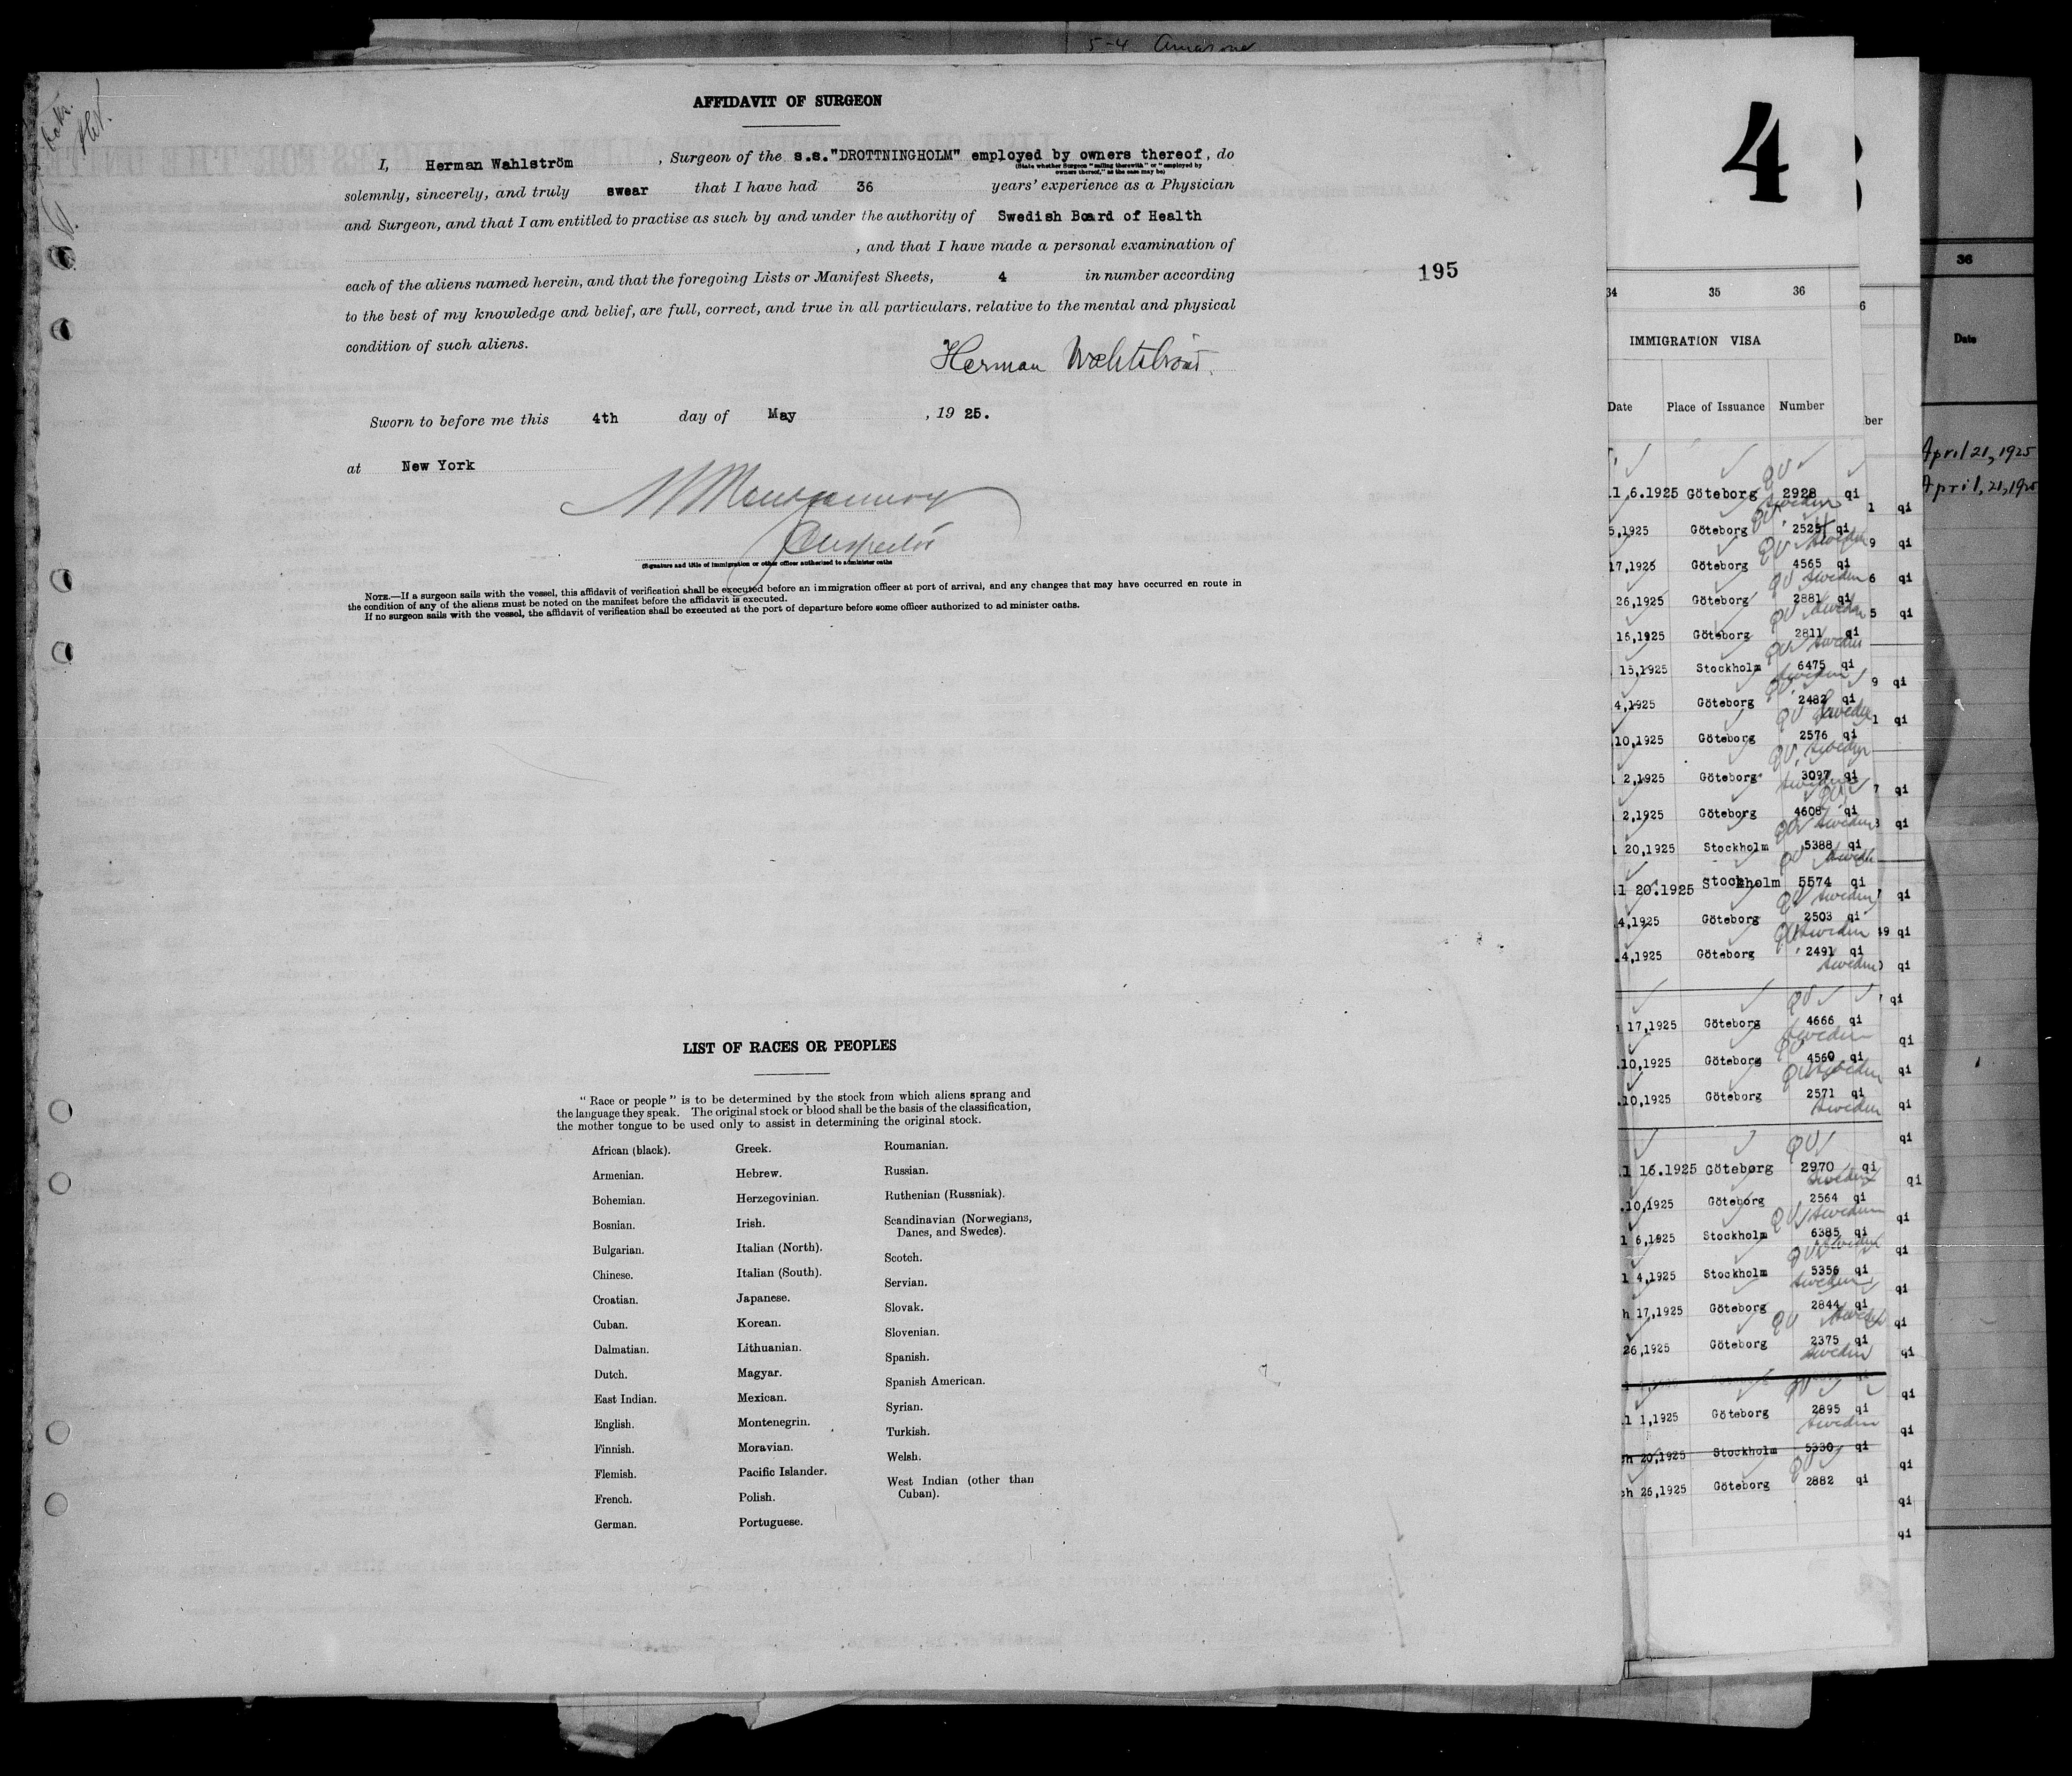 5-4
AFFIDAVIT OF SURGEON
I, Herman Wahlström , Surgeon of the s.s."DROTTNINGHOLM" employed by owners thereof, do
(State whether Surgeon "sailing therewith" or "employed by
owners thereof," as the case may be)
solemnly, sincerely, and truly swear that I have had 36 years' experience as a Physician
and Surgeon, and that I am entitled to practise as such by and under the authority of Swedish Board of Health
, and that I have made a personal examination of
each of the aliens named herein, and that the foregoing Lists or Manifest Sheets, 4 in number according
to the best of my knowledge and belief, are full, correct, and true in all particulars, relative to the mental and physical
condition of such aliens.
Herman Wahlström.
Sworn to before me this 4th day of May , 19 25.
at New York
Inspector
(Signature and title of immigration or other officer authorized to administer oaths
NOTE.—If a surgeon sails with the vessel, this affidavit of verification shall be executed before an immigration officer at port of arrival, and any changes that may have occurred en route in
the condition of any of the aliens must be noted on the manifest before the affidavit is executed.
If no surgeon sails with the vessel, the affidavit of verification shall be executed at the port of departure before some officer authorized to administer oaths.
195
LIST OF RACES OR PEOPLES
"Race or people" is to be determined by the stock from which aliens sprang and
the language they speak. The original stock or blood shall be the basis of the classification,
the mother tongue to be used only to assist in determining the original stock.
African (black).
Armenian.
Bohemian.
Bosnian.
Bulgarian.
Chinese.
Croatian.
Cuban.
Dalmatian.
Dutch.
East Indian.
English.
Finnish.
Flemish.
French.
German.
Greek.
Hebrew.
Herzegovinian.
Irish.
Italian (North).
Italian (South).
Japanese.
Korean.
Lithuanian.
Magyar.
Mexican.
Montenegrin.
Moravian.
Pacific Islander.
Polish.
Portuguese.
Roumanian.
Russian.
Ruthenian (Russniak).
Scandinavian (Norwegians,
Danes, and Swedes).
Scotch.
Servian.
Slovak.
Slovenian.
Spanish.
Spanish American.
Syrian.
Turkish.
Welsh.
West Indian (other than
Cuban).
4
34 35 36
IMMIGRATION VISA
Date Place of Issuance Number
6.1925 Göteborg 2928 qi
5,1925 Göteborg 2525 qi
17,1925 Göteborg 4565 qi
26,1925 Göteborg 2881 qi
16,1925 Göteborg 2811 qi
15,1925 Stockholm 6475 qi
4,1925 Göteborg 2482 qi
10,1925 Göteborg 2576 qi
2,1925 Göteborg 3097 qi
2,1925 Göteborg 4608 qi
20,1925 Stockholm 5388 qi
20.1925 Stockholm 5574 qi
4,1925 Göteborg 2503 qi
4,1925 Göteborg 2491 qi
17,1925 Göteborg 4666 qi
10,1925 Göteborg 4560 qi
10,1925 Göteborg 2571 qi
16.1925 Göteborg 2970 qi
10,1925 Göteborg 2564 qi
6,1925 Stockholm 6385 qi
4,1925 Stockholm 5356 qi
h 17,1925 Göteborg 2844 qi
26,1925 Göteborg 2375 qi
1,1925 Göteborg 2895 qi
h 20,1925 Stockholm 5330 qi
ch 26,1925 Göteborg 2882 qi
36
Date
April 21, 1925
April, 21, 192